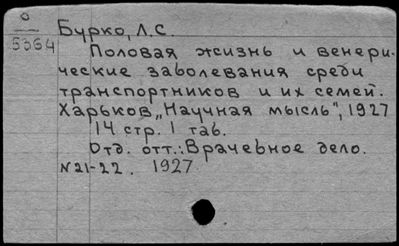 0
5364
Бурко, Л.С.
Половая жизнь и венери-
ческие заболевания среди
транспортников и их семей.
Харьков „Научная мысль", 1927
14 стр. 1 таб.
Отд. отт.: Врачебное дело.
N 21-22. 1927